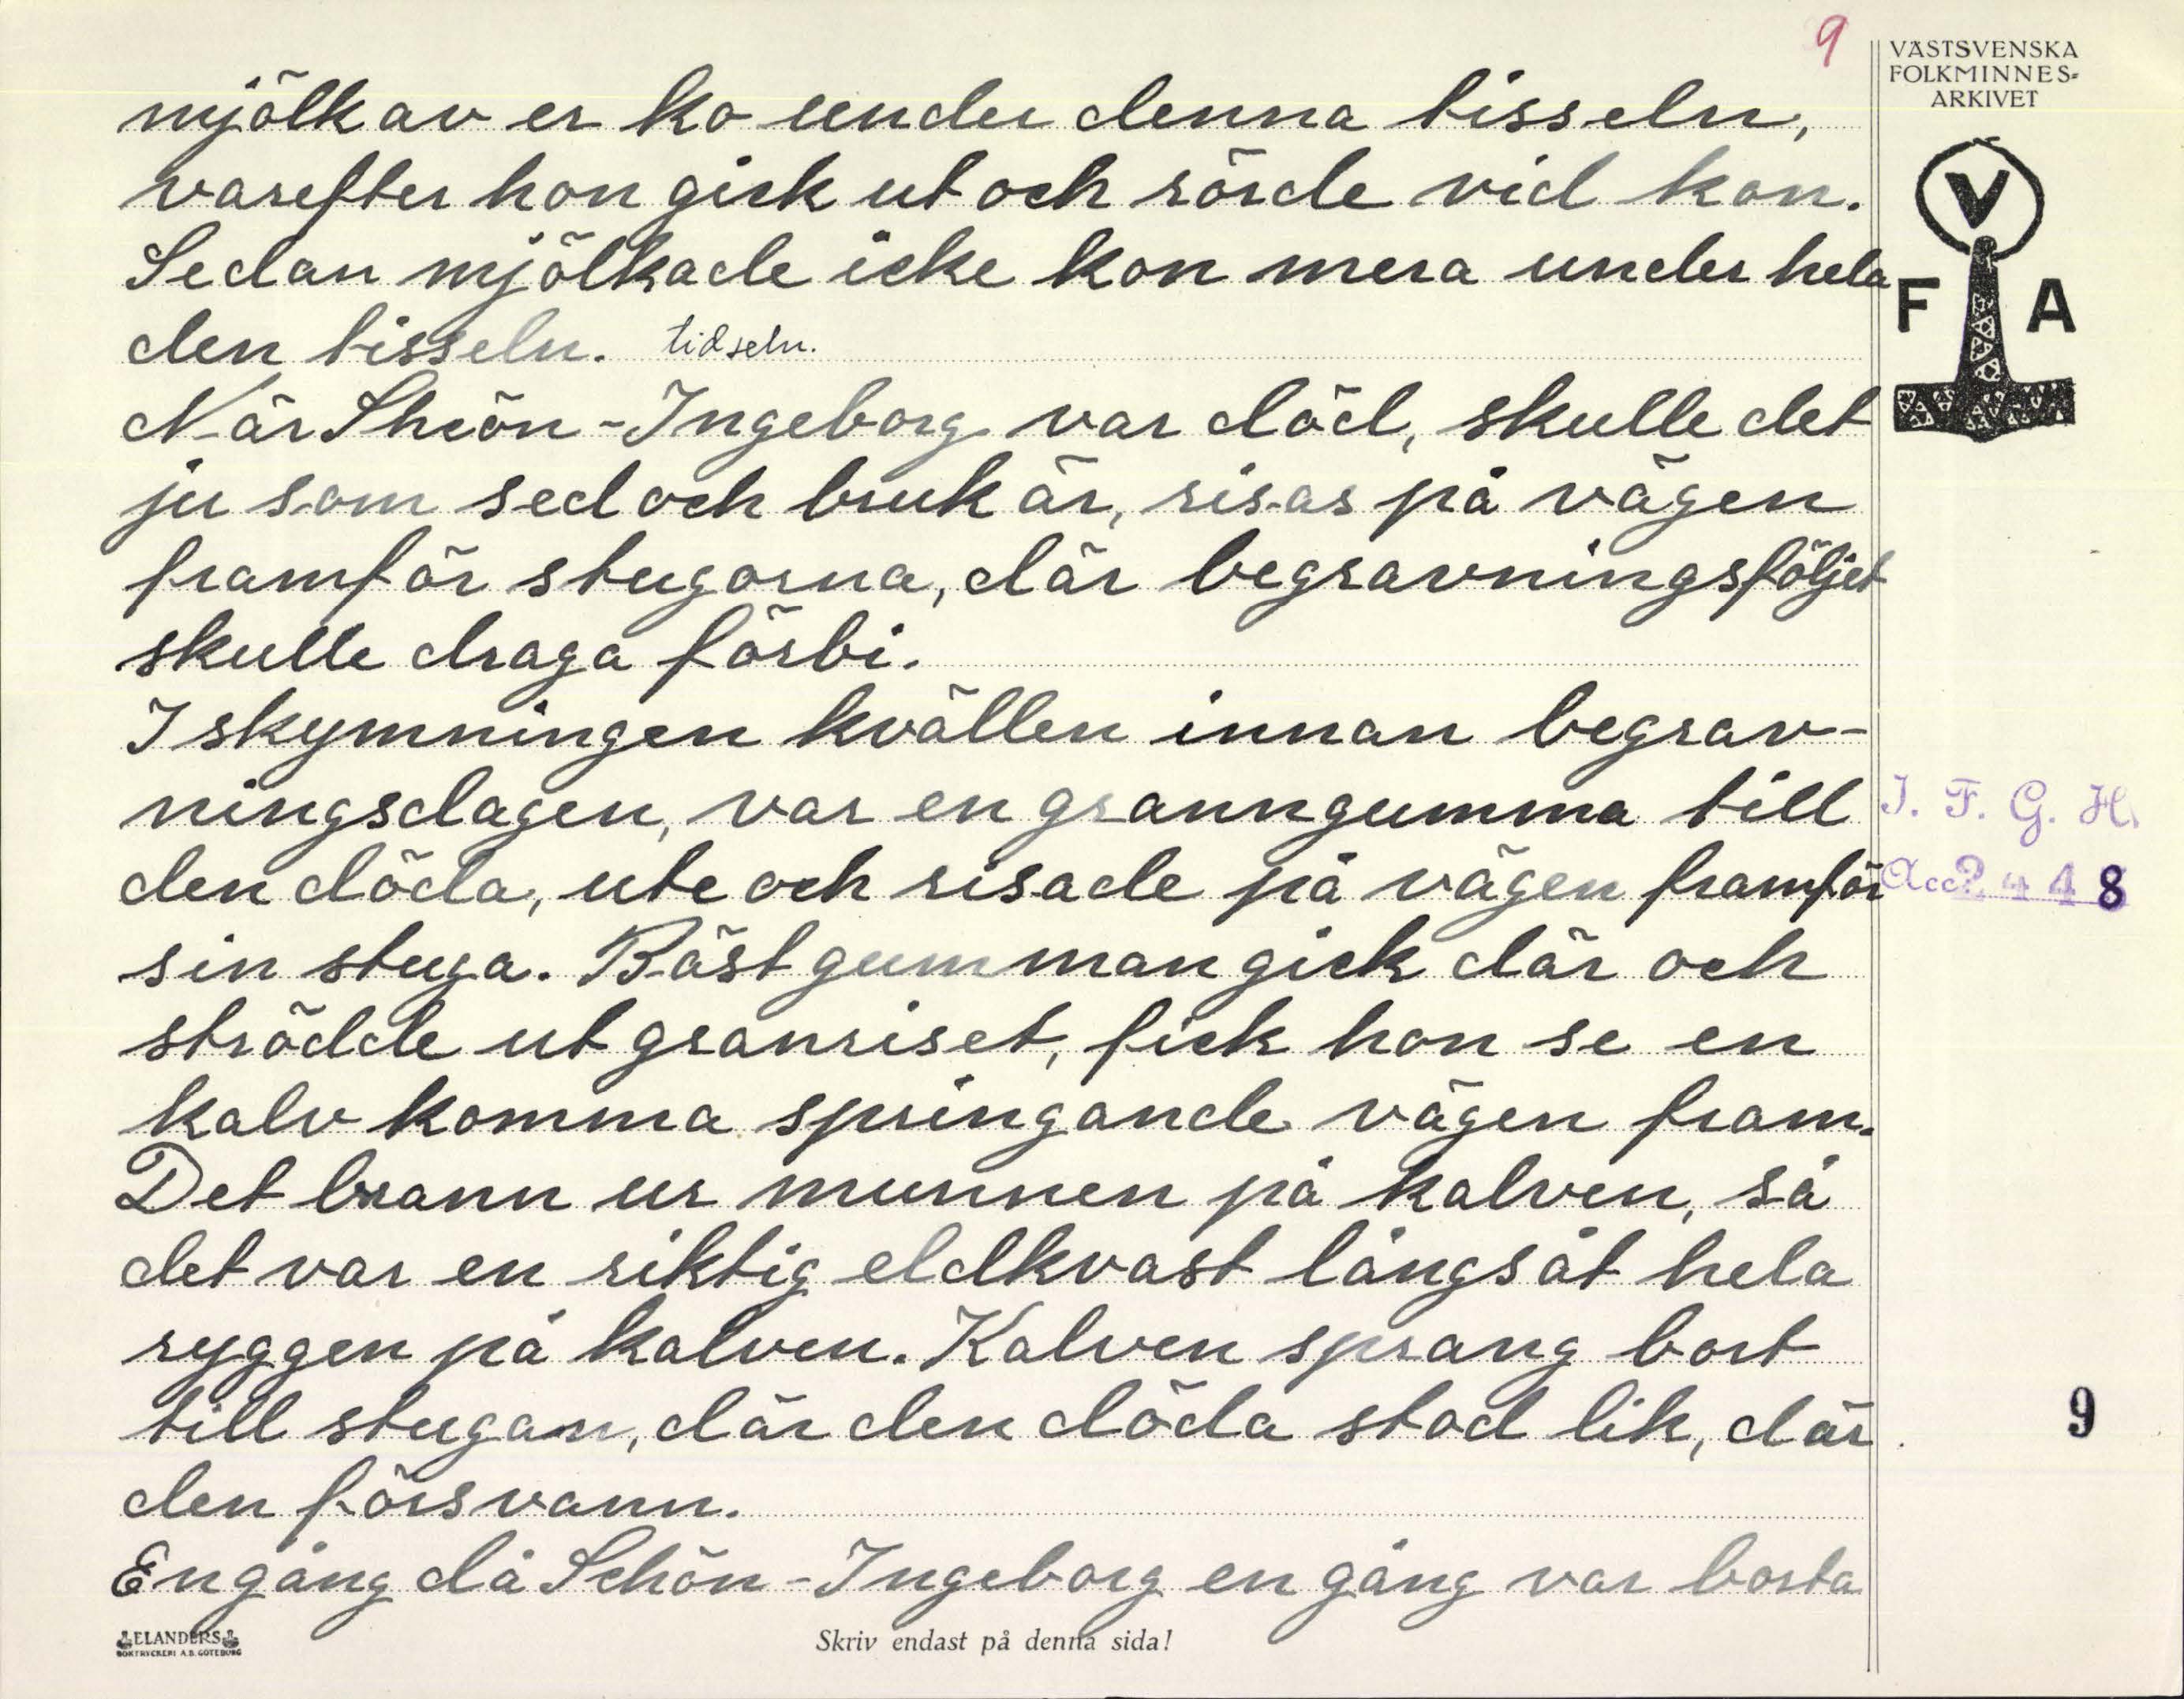 9
VÄSTSVENSKA
FOLKMINNES-
ARKIVET
V
F A
mjölk av er ko under denna tisseln,
varefter hon gick ut och rörde vid kon.
Sedan mjölkade icke kon mera under hela
den tisseln. tidseln.
När Sheön-Ingeborg var död, skulle det
ju som sed och bruk är, risas på vägen
framför stugorna, där begravningsföljet
skulle draga förbi.
I skymningen kvällen innan begrav-
ningsdagen, var en granngumma till
den döda, ute och risade på vägen framför
sin stuga. Bäst gumman gick där och
strödde ut granriset, fick hon se en
kalv komma springande vägen fram.
Det brann ur munnen på kalven, så
det var en riktig eldkvast långsåt hela
ryggen på kalven. Kalven sprang bort
till stugan, där den döda stod lik, där
den försvann.
En gång då Schön-Ingeborg en gång var borta
I. F. G. H.
Acc 2448
9
ELANDERS
BOKTRYCKERI A.B. GÖTEBORG
Skriv endast på denna sida!